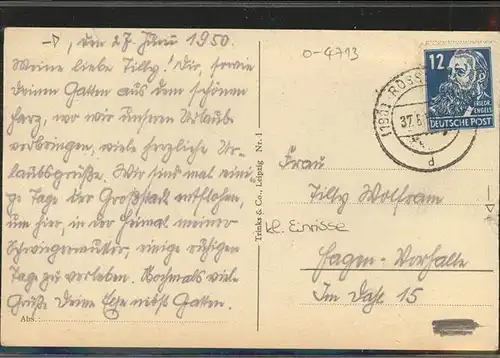 den 27. Juni 1950.
Meine liebe Tilly! Dir, sowie
Deinen Gatten aus dem schönen
Harz, wo wir unseren Urlaub
verbringen, viele herzliche Ur-
laubsgrüße. Wir sind mal eini-
ge Tage der Großstadt entflohen,
um hier, in der Heimat meiner
Schwiegermutter, einige ruhigen
Tage zu verleben. Nochmals viele
Grüße Deine Else nebst Gatten.
Abs.
Trinks & Co., Leipzig Nr. 1
0-4713
12
FRIEDR. ENGELS
DEUTSCHE POST
(19a) ROSS
d
Frau
Tilly Wolfram
kl. Einrisse
Hagen-Vorhalle
Im Dahl 15